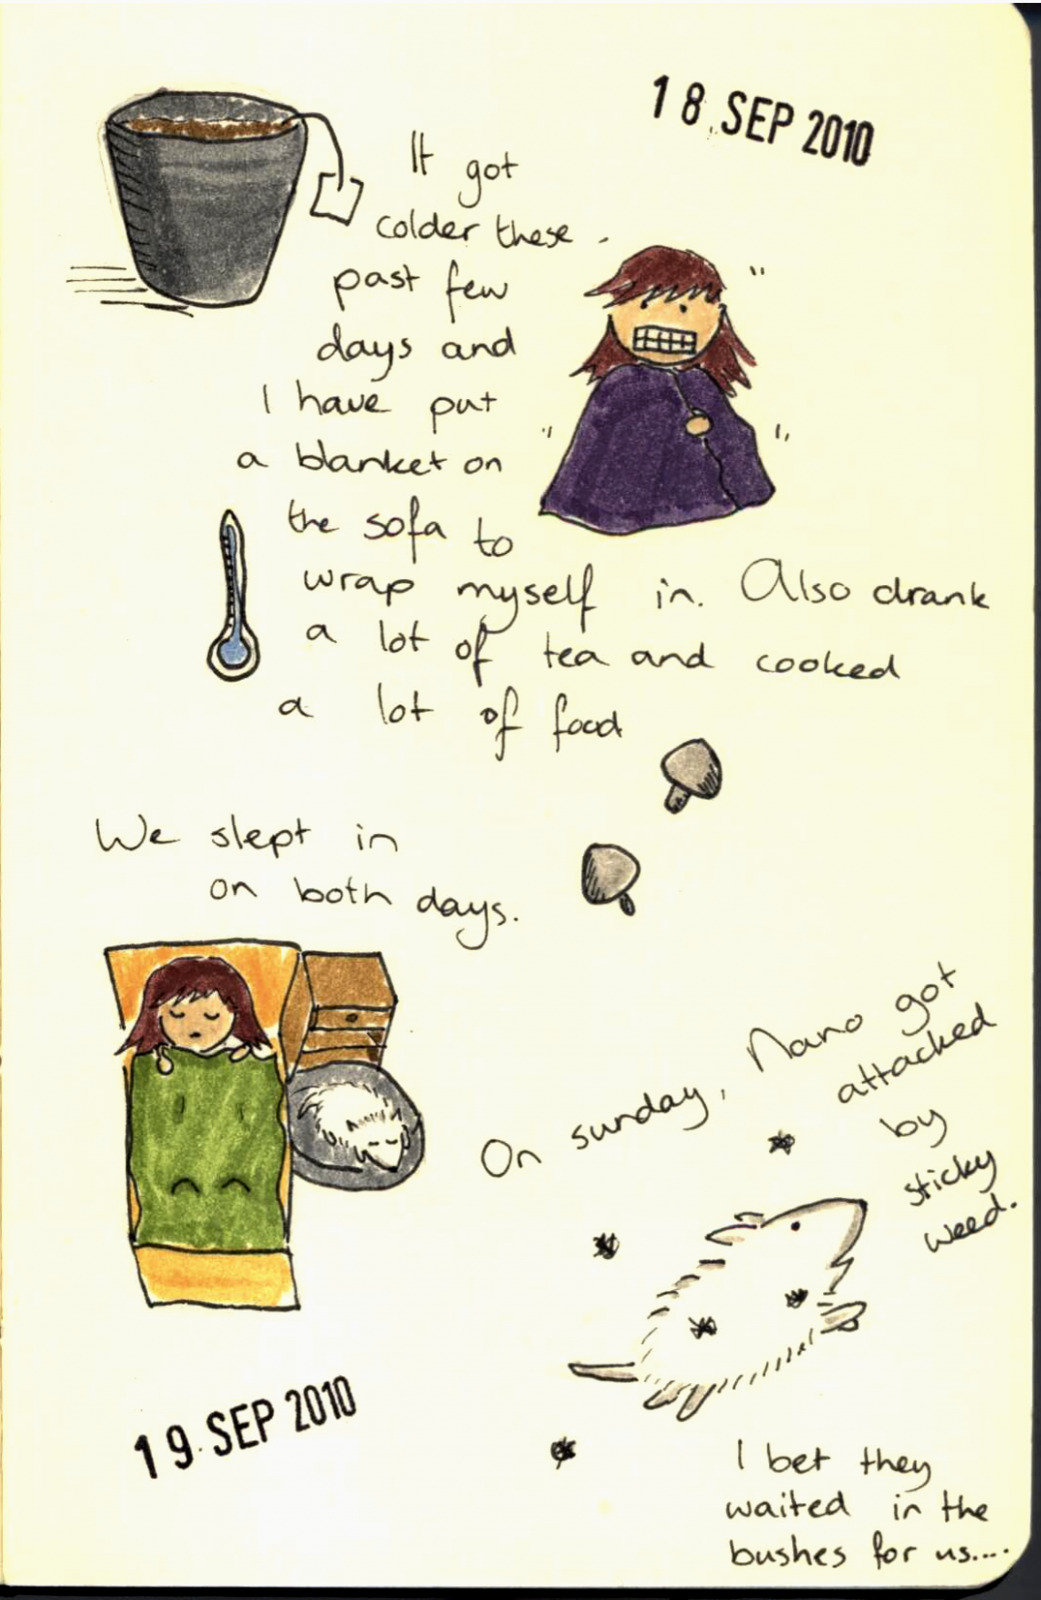 18 SEP 2010
It got
colder these
past few
days and
I have put
a blanket on
the sofa to
wrap myself in. Also drank
a lot of tea and cooked
a lot of food
We slept in
on both days.
On sunday, Nano got
attacked
by
sticky
weed.
19. SEP 2010
I bet they
waited in the
bushes for us....